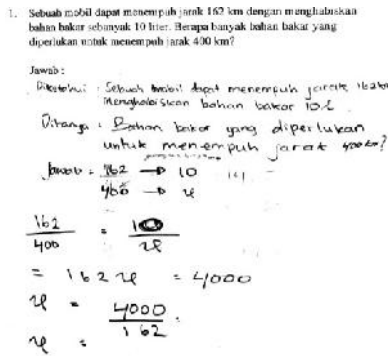 1. Sebuah mobil dapat menempuh jarak 162 km dengan menghabiskan
bahan bakar sebanyak 10 liter. Berapa banyak bahan bakar yang
diperlukan untuk menempuh jarak 400 km?
Jawab :
Diketahui : Sebuah mobil dapat menempuh jarak 162 km
Menghabiskan bahan bakar 10 L
Ditanya : Bahan bakar yang diperlukan
untuk menempuh jarak 400 km?
Jawab : 162 → 10
400 → x
162/400 = 10/x
= 162 x = 4000
x = 4000/162
x =